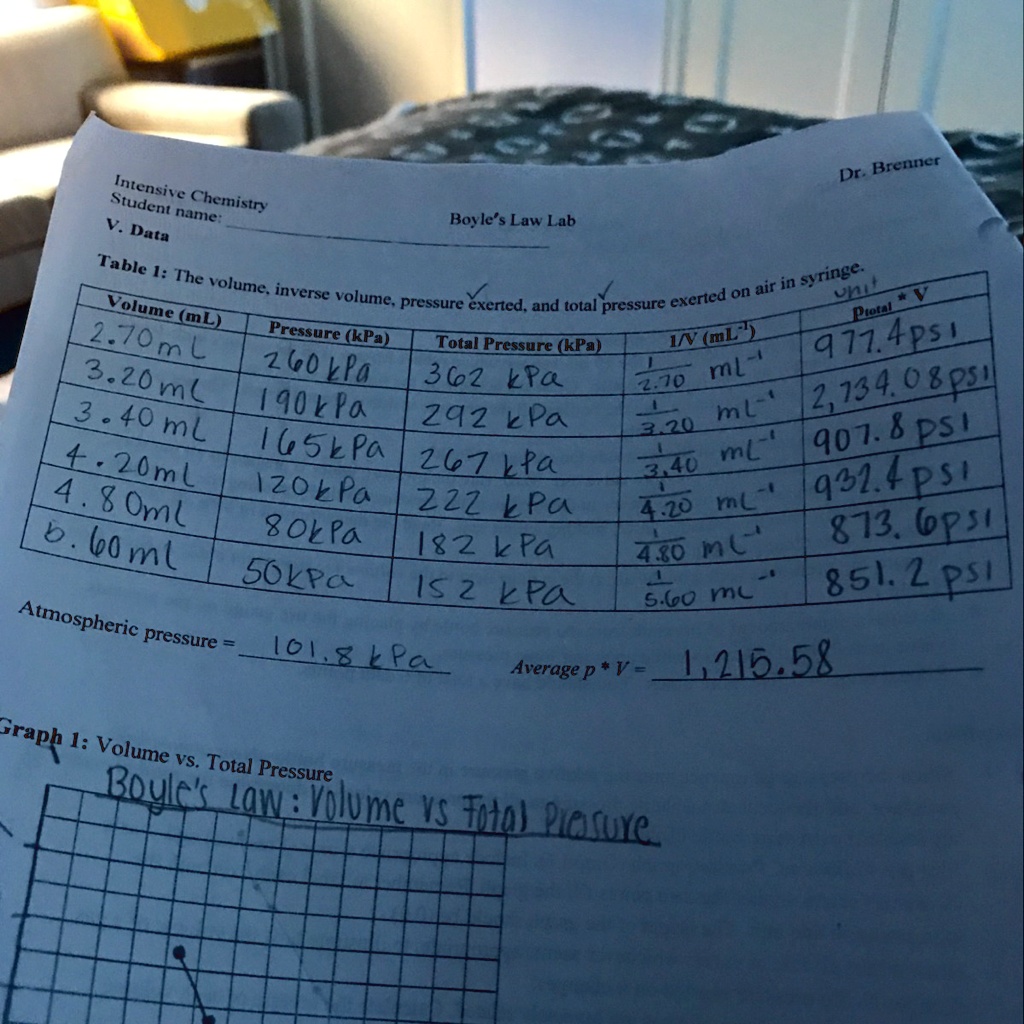 Intensive Chemistry
Dr. Brenner
Student name:
Boyle's Law Lab
V. Data
Table 1: The volume, inverse volume, pressure exerted, and total pressure exerted on air in syringe.
unit
Volume (mL) Pressure (kPa) Total Pressure (kPa) 1/V (mL⁻¹) Ptotal * V
2.70 mL 260 kPa 362 kPa 1/2.70 mL⁻¹ 977.4 psi
3.20 mL 190 kPa 292 kPa 1/3.20 mL⁻¹ 2,734.08 psi
3.40 mL 165 kPa 267 kPa 1/3.40 mL⁻¹ 907.8 psi
4.20 mL 120 kPa 222 kPa 1/4.20 mL⁻¹ 932.4 psi
4.80 mL 80 kPa 182 kPa 1/4.80 mL⁻¹ 873.6 psi
5.60 ml 50 kPa 152 kPa 1/5.60 mL⁻¹ 851.2 psi
Atmospheric pressure = 101.8 kPa Average p * V = 1,215.58
Graph 1: Volume vs. Total Pressure
Boyle's Law: Volume vs Total Pressure